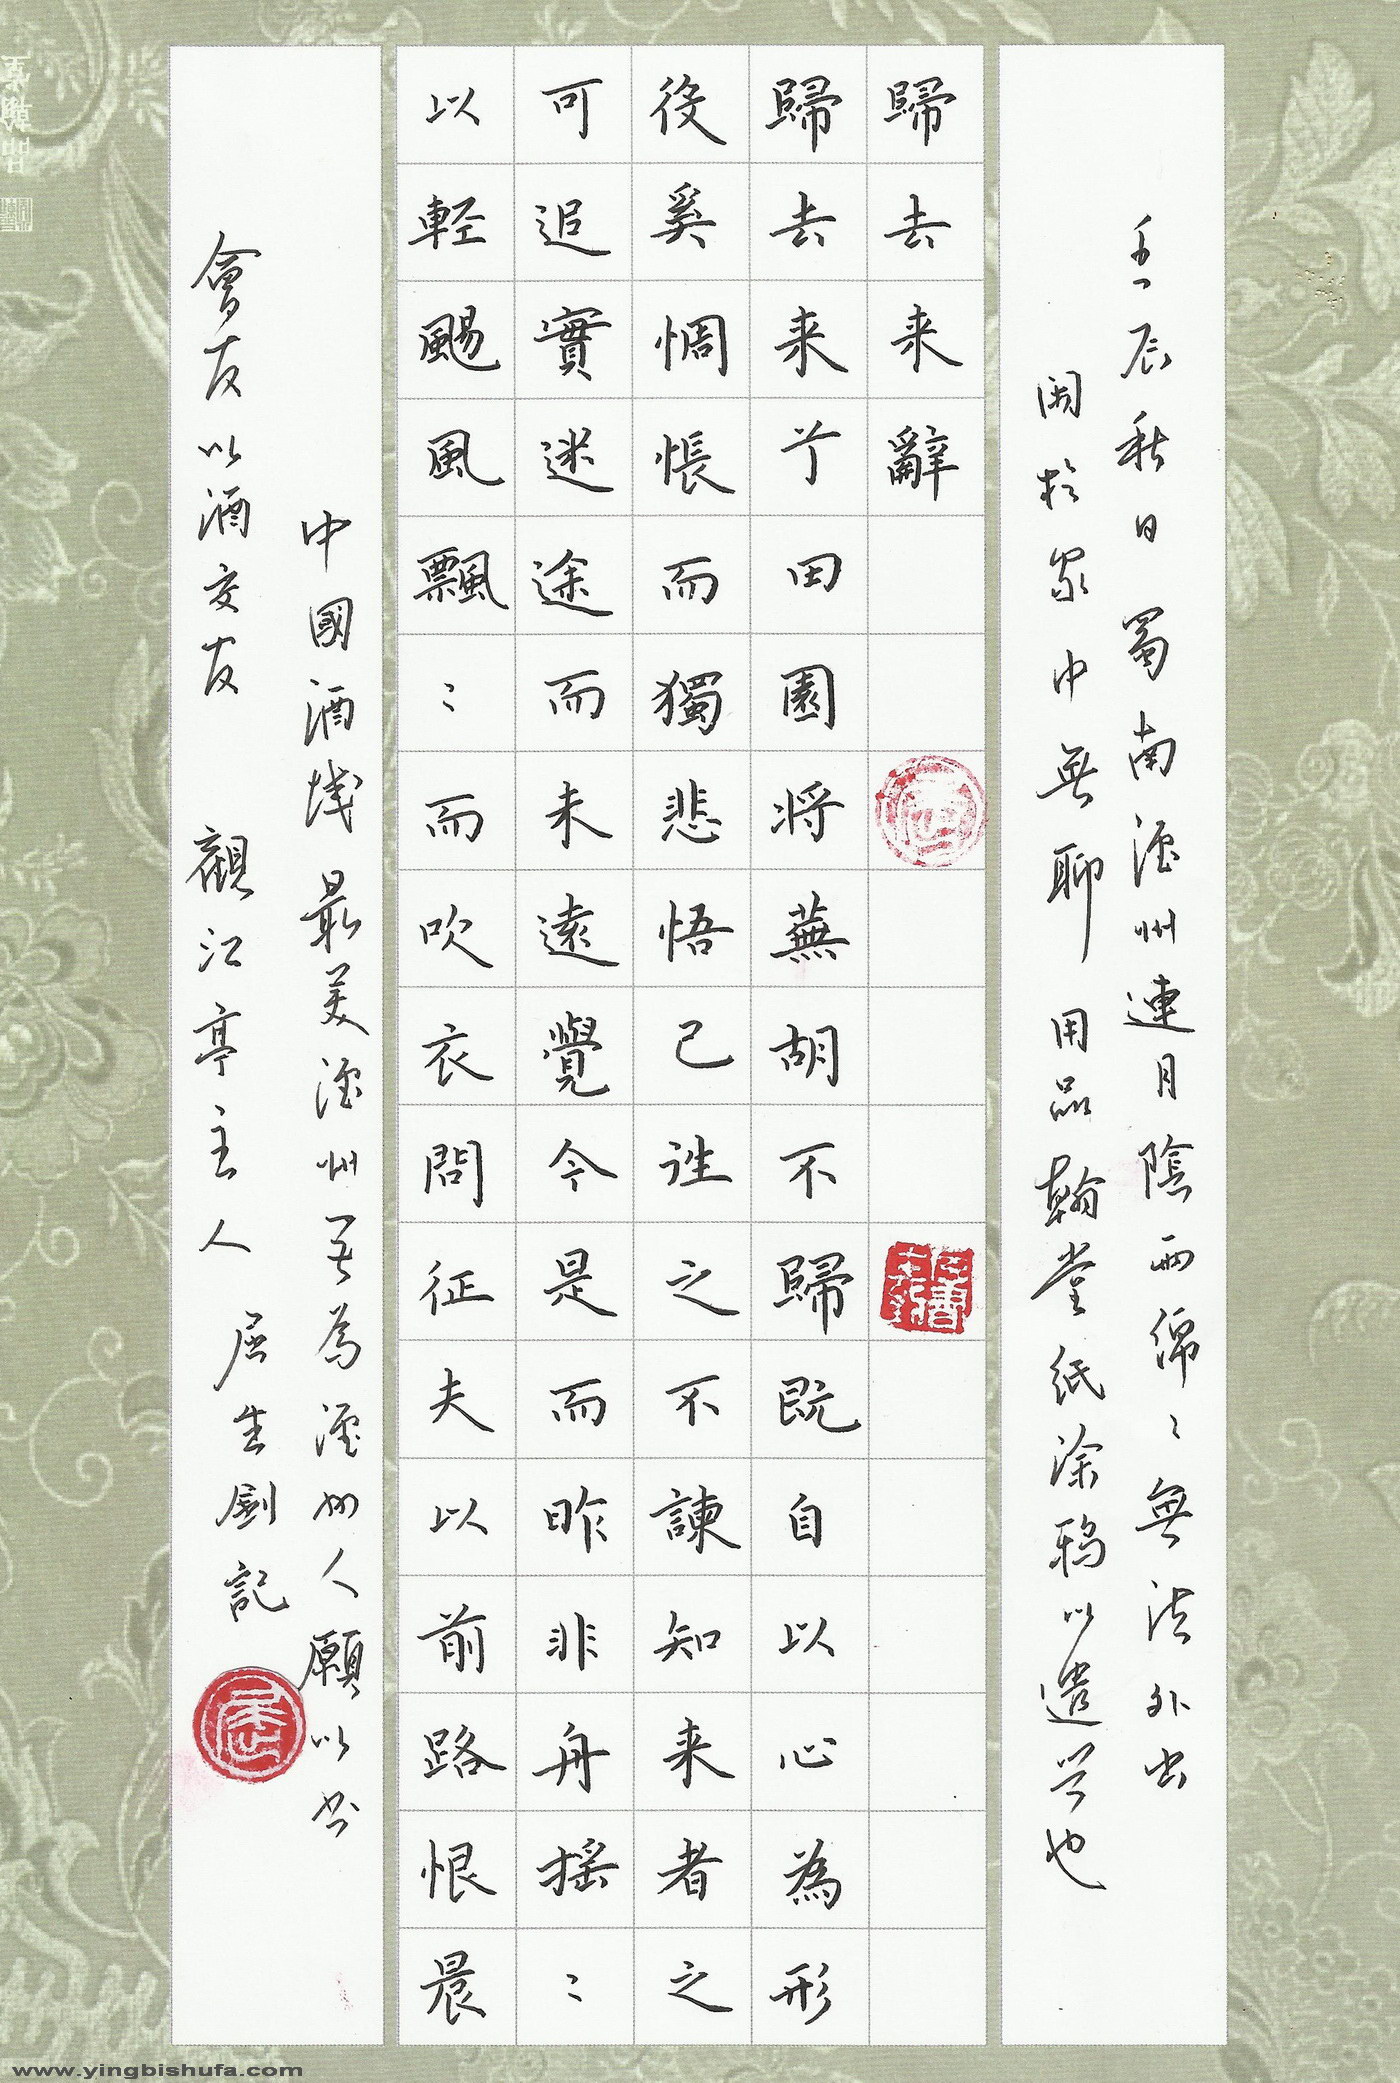 壬辰秋日蜀南瀘州連月陰雨綿々無法外出
閑於家中無聊 用品翰堂紙涂鸦以遣兴也
歸去来辭
歸去来兮田園将蕪胡不歸既自以心為形
役奚惆悵而獨悲悟已往之不諫知来者之
可追實迷途而未遠覺今是而昨非舟摇々
以輕颺風飄々而吹衣問征夫以前路恨晨
中國酒城 最美瀘州 吾為瀘州人願以书
會友以酒交友 觀江亭主人 屈生劍記
www.yingbishufa.com